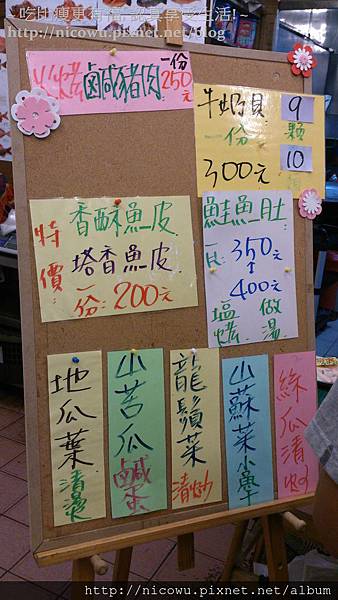 吃比瘦更有福! 認真享受生活!~
http://nicowu.pixnet.net/blog
火烤鹹豬肉 一份250元
牛奶貝 9顆
一份 10
300元
香酥魚皮
特價
塔香魚皮
一份:200元
鮭魚肚
一片 350元
400元
塩烤 做湯
地瓜葉清燙
山苦瓜鹹蛋
龍鬚菜清炒
山蘇菜小魚
絲瓜清炒
http://nicowu.pixnet.net/album